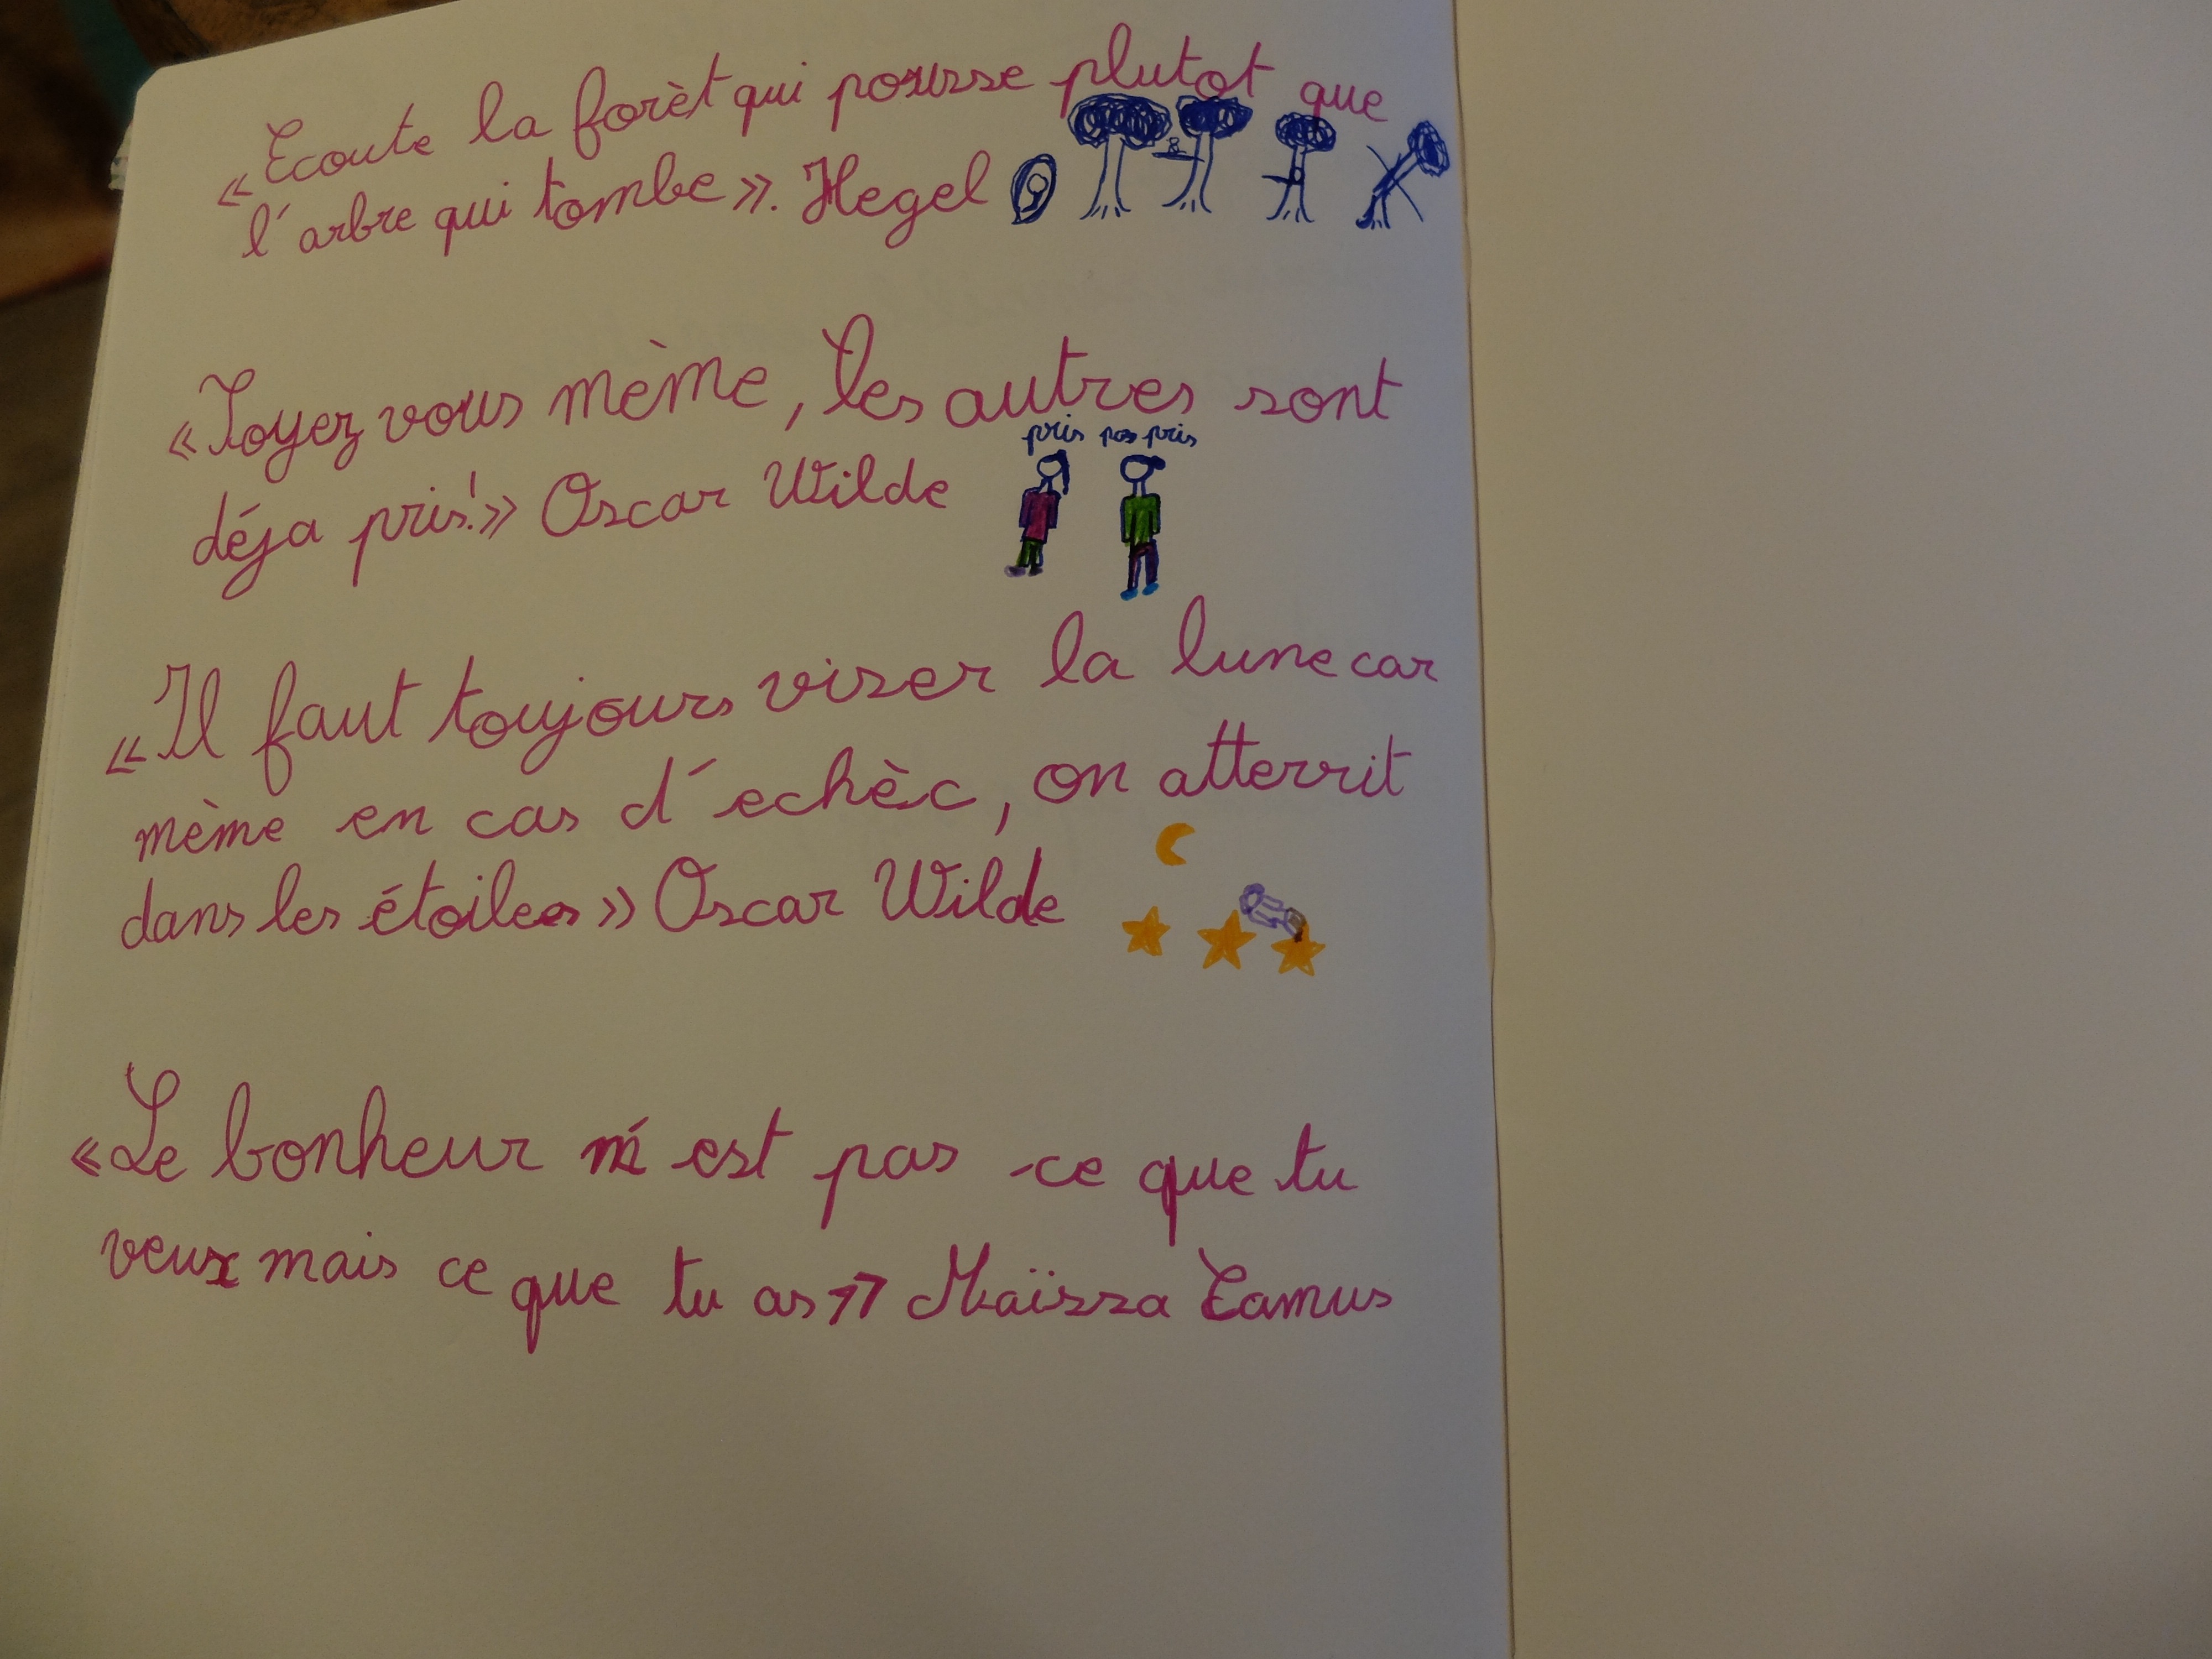 «Ecoute la forèt qui pousse plutot que
l'arbre qui tombe». Hegel
«Soyez vous mème, les autres sont
pris pas pris
déja pris!» Oscar Wilde
«Il faut toujours viser la lune car
mème en cas d'echèc, on atterrit
dans les étoiles» Oscar Wilde
«Le bonheur n'est pas ce que tu
veux mais ce que tu as» Maïssa Camus